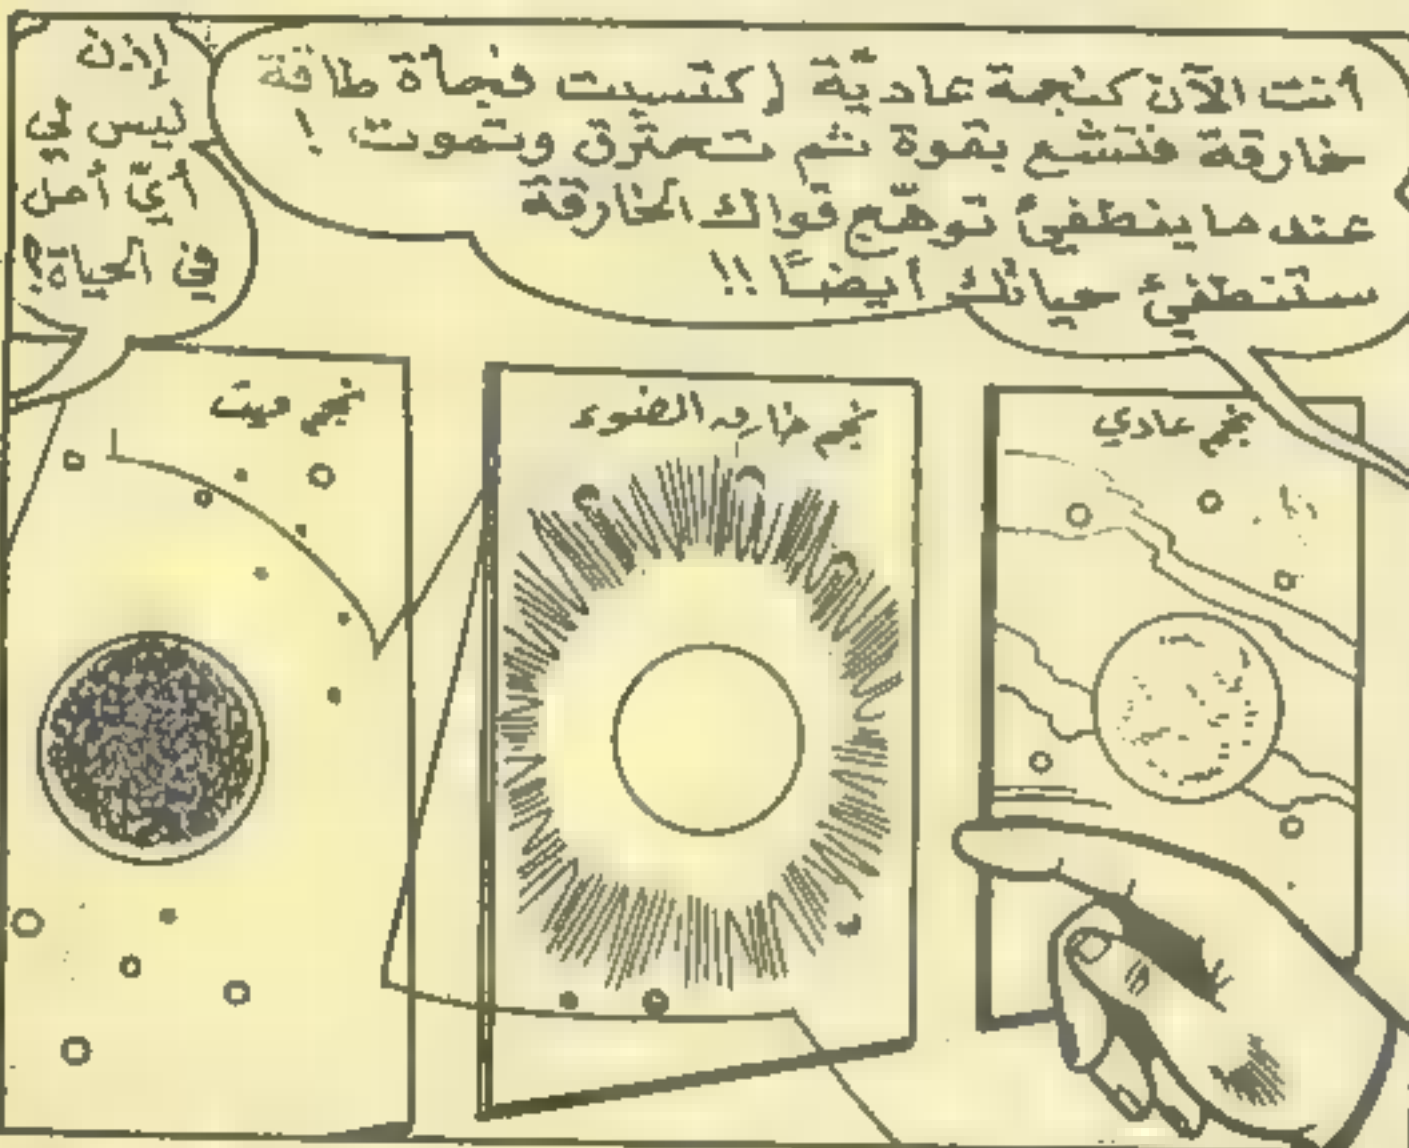 أنت الآن كنجمة عاديّة اكتسبت فجأة طاقة
خارقة فتشع بقوة ثم تحترق وتموت !
عندما ينطفئ توهّج قواك الخارقة
ستنطفئ حياتك أيضًا !!
إذن
ليس لي
أيّ أمل
في الحياة؟
نجم عادي
نجم خارق الضوء
نجم ميت